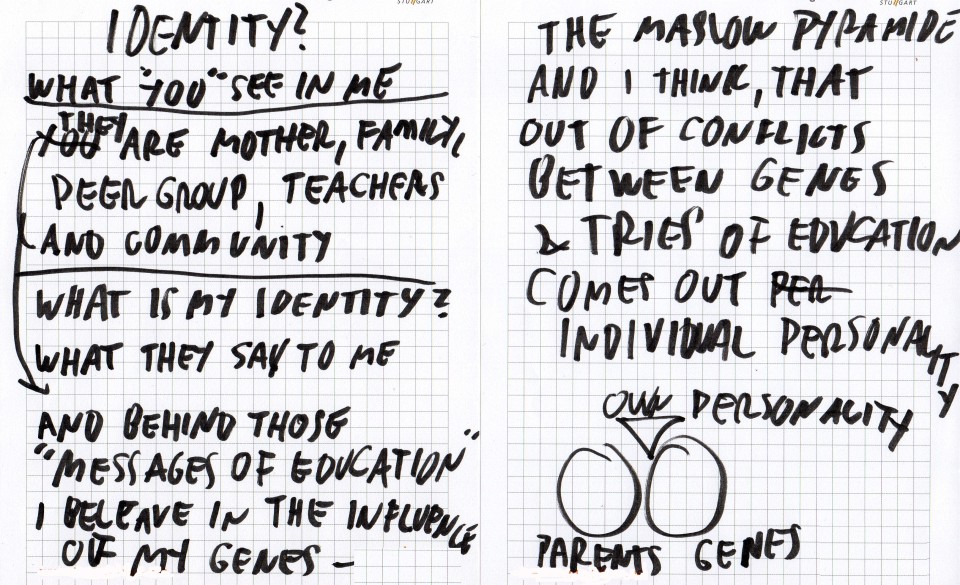 STUTTGART
IDENTITY?
WHAT "YOU" SEE IN ME
THEY
YOU ARE MOTHER, FAMILY,
PEER GROUP, TEACHERS
AND COMMUNITY
WHAT IS MY IDENTITY?
WHAT THEY SAY TO ME
AND BEHIND THOSE
"MESSAGES OF EDUCATION"
I BELEAVE IN THE INFLUENCE
OF MY GENES –
STUTTGART
THE MASLOW PYRAMIDE
AND I THINK, THAT
OUT OF CONFLICTS
BETWEEN GENES
& TRIES OF EDUCATION
COMES OUT PER
INDIVIDUAL PERSONALITY
OWN PERSONALITY
PARENTS GENES